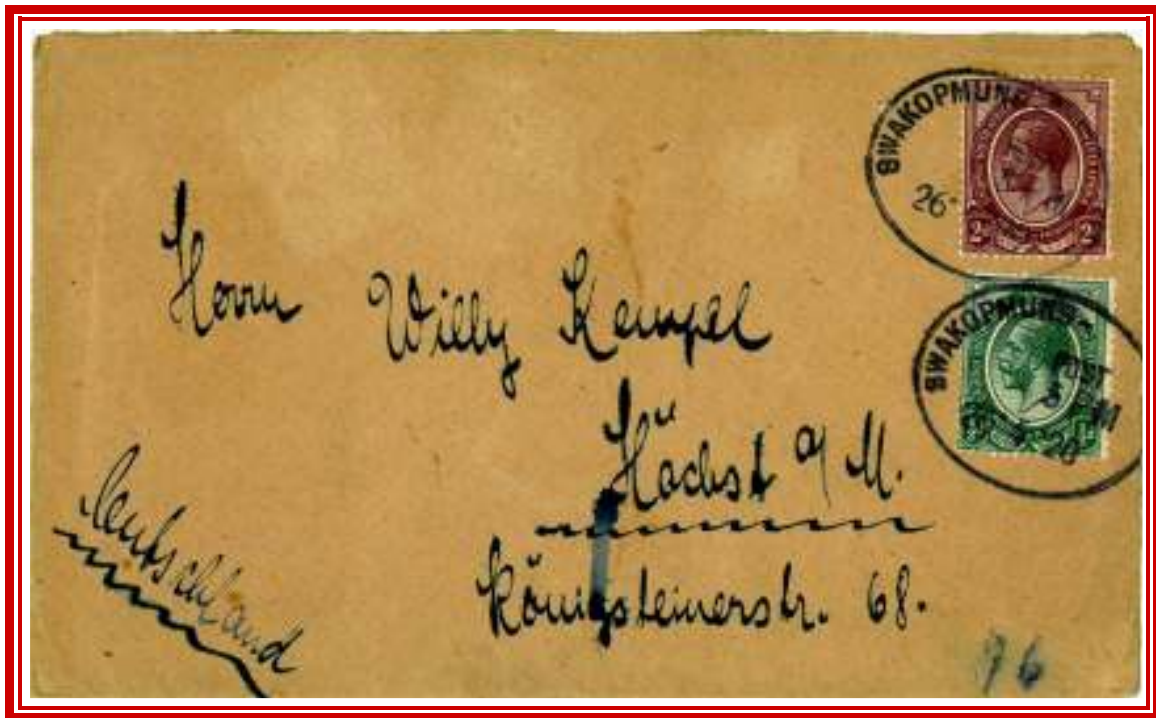 SWAKOPMUND
26
2d 2d
SWAKOPMUND
Herrn Willy Kempel
Höchst a/M.
Königsteinerstr. 68.
Deutschland
76